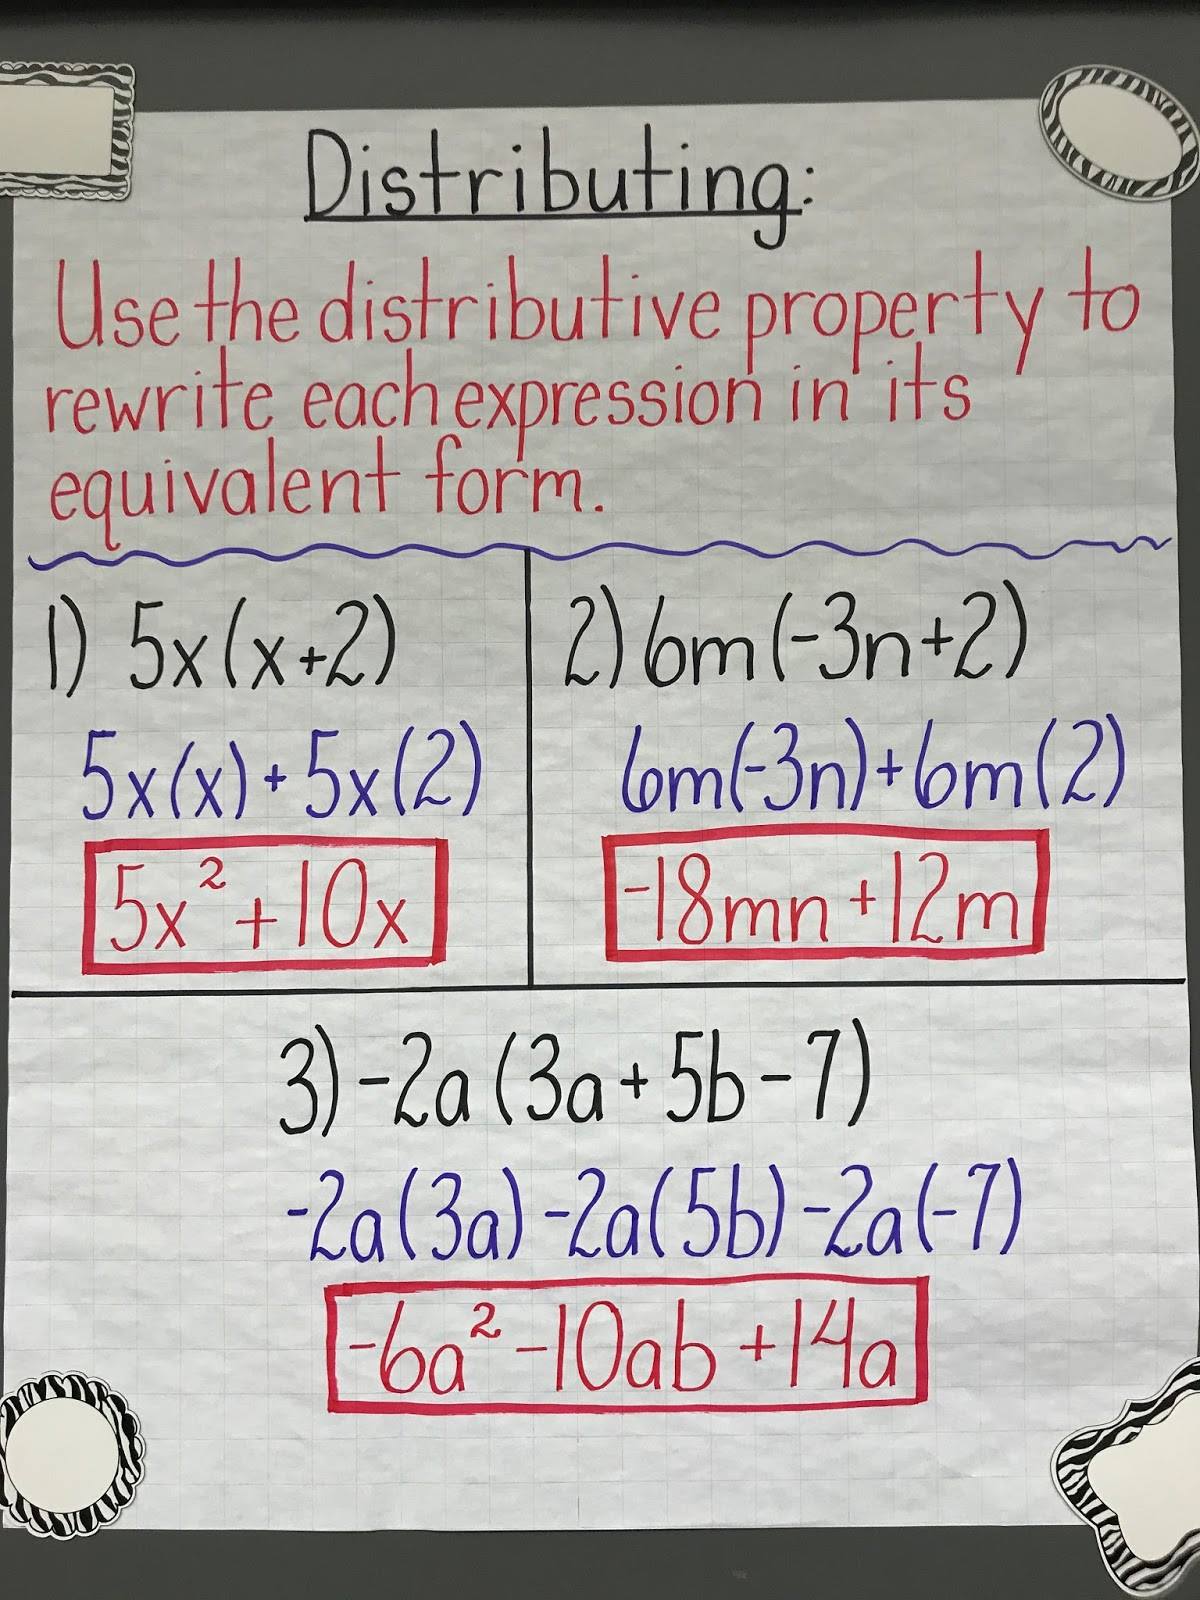 Distributing:
Use the distributive property to
rewrite each expression in its
equivalent form.
1) 5x(x+2)
5x(x)+5x(2)
5x²+10x
2) 6m(-3n+2)
6m(-3n)+6m(2)
-18mn+12m
3) -2a(3a+5b-7)
-2a(3a)-2a(5b)-2a(-7)
-6a²-10ab+14a